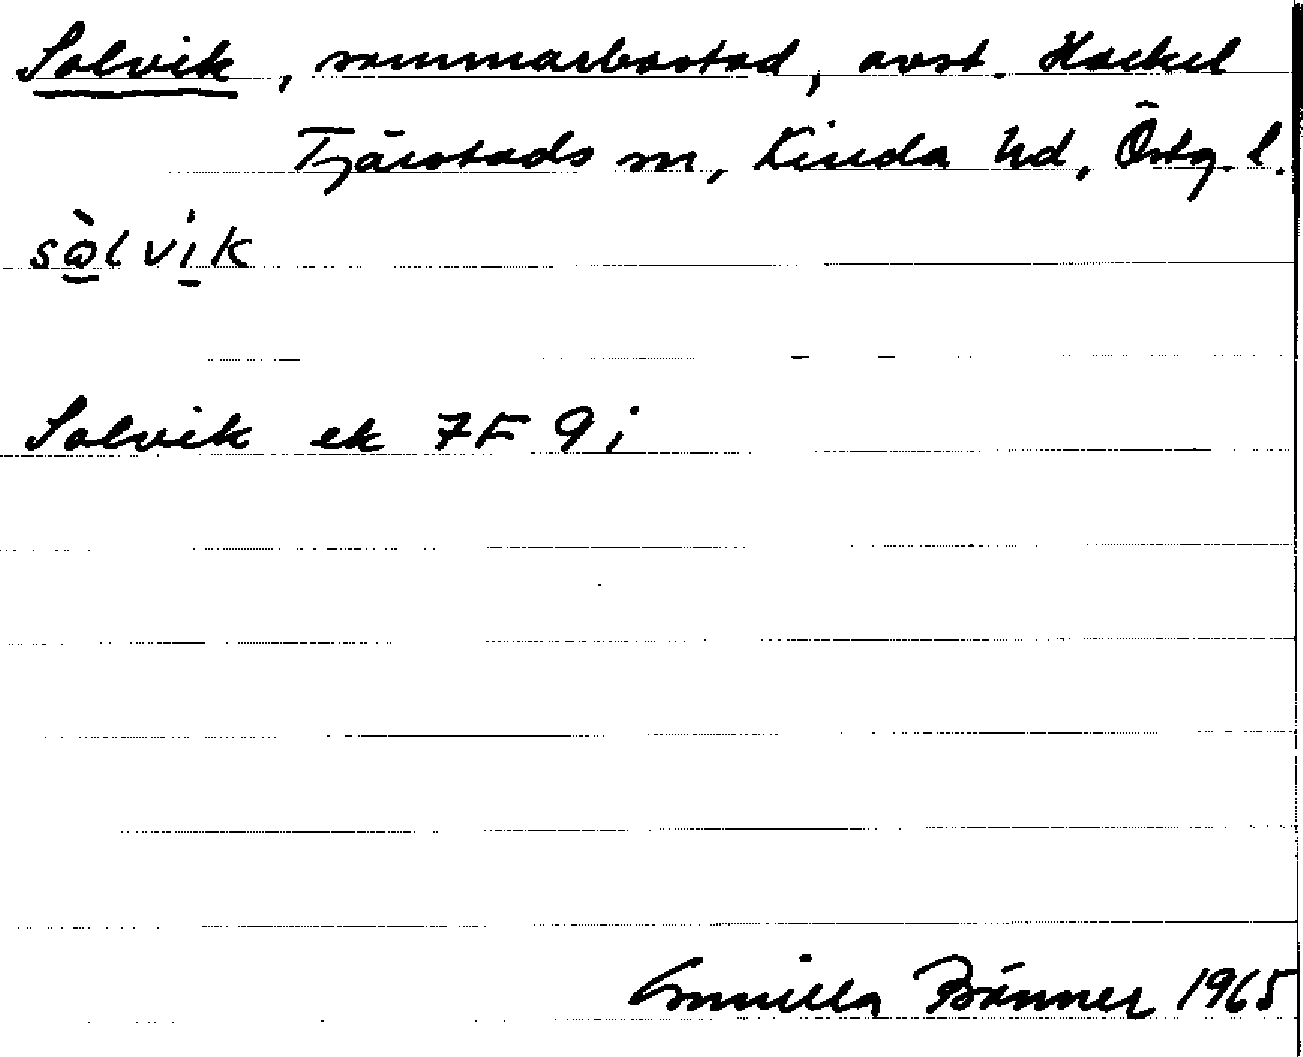 Solvik, sommarbostad, avst. Hackel
Tjärstads sn, Kinda hd, Östg. l.
sòlvik
Solvik ek 7F 9i
Gunilla Bänner 1965